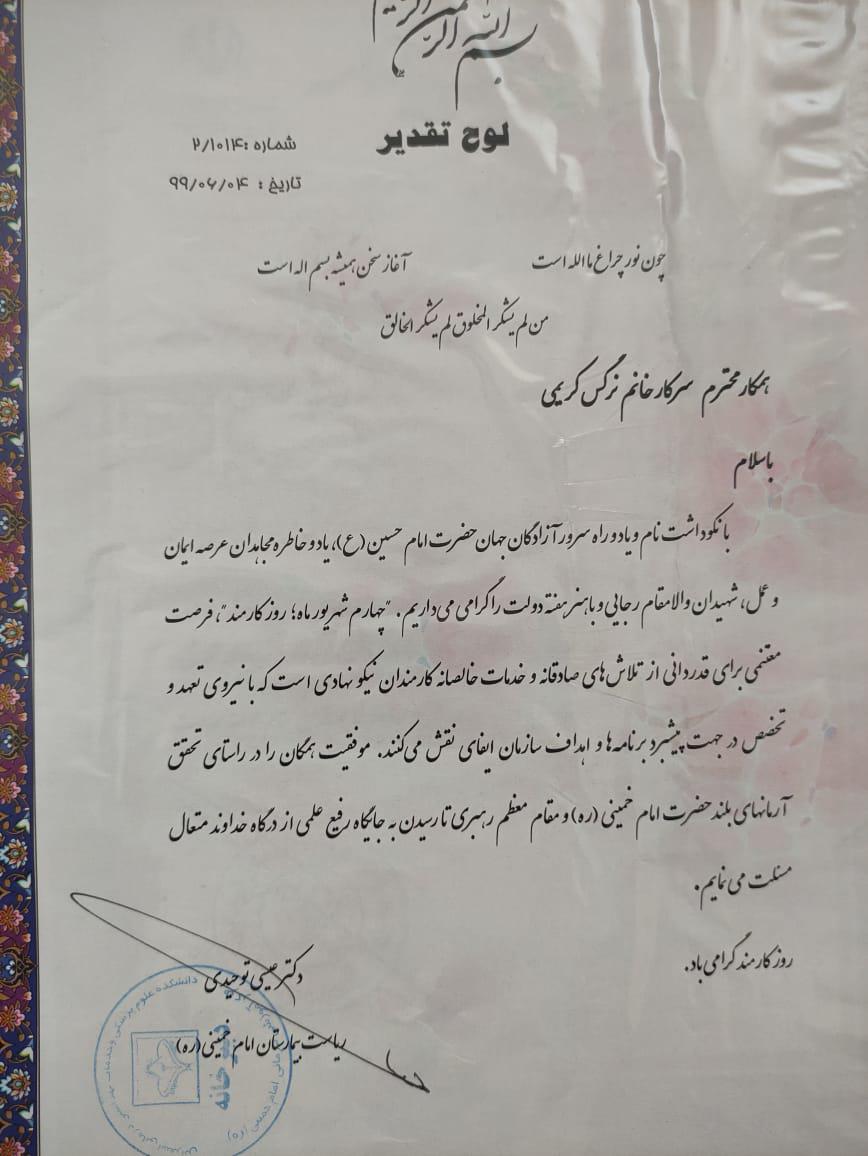 بسم الله الرحمن الرحیم
لوح تقدیر
شماره :۲/۱۰۱۴
تاریخ : ۹۹/۰۶/۰۴
چون نور چراغ ما الله است آغاز سخن همیشه بسم اله است
من لم یشکر المخلوق لم یشکر الخالق
همکار محترم سرکار خانم نرگس کریمی
باسلام
با نکوداشت نام و یاد و راه سرور آزادگان جهان حضرت امام حسین (ع)، یاد و خاطره مجاهدان عرصه ایمان
و عمل، شهیدان والامقام رجایی و باهنر هفته دولت را گرامی می‌داریم. "چهارم شهریور ماه؛ روز کارمند"، فرصت
مغتنمی برای قدردانی از تلاش‌های صادقانه و خدمات خالصانه کارمندان نیکو نهادی است که با نیروی تعهد و
تخصص در جهت پیشبرد برنامه‌ها و اهداف سازمان ایفای نقش می‌کنند. موفقیت همگان را در راستای تحقق
آرمانهای بلند حضرت امام خمینی (ره) و مقام معظم رهبری تا رسیدن به جایگاه رفیع علمی از درگاه خداوند متعال
مسئلت می نمایم.
روز کارمند گرامی باد.
دکتر عیسی توحیدی
ریاست بیمارستان امام خمینی (ره)
دانشکده علوم پزشکی و خدمات بهداشتی درمانی
امام خمینی (ره)
دبیرخانه